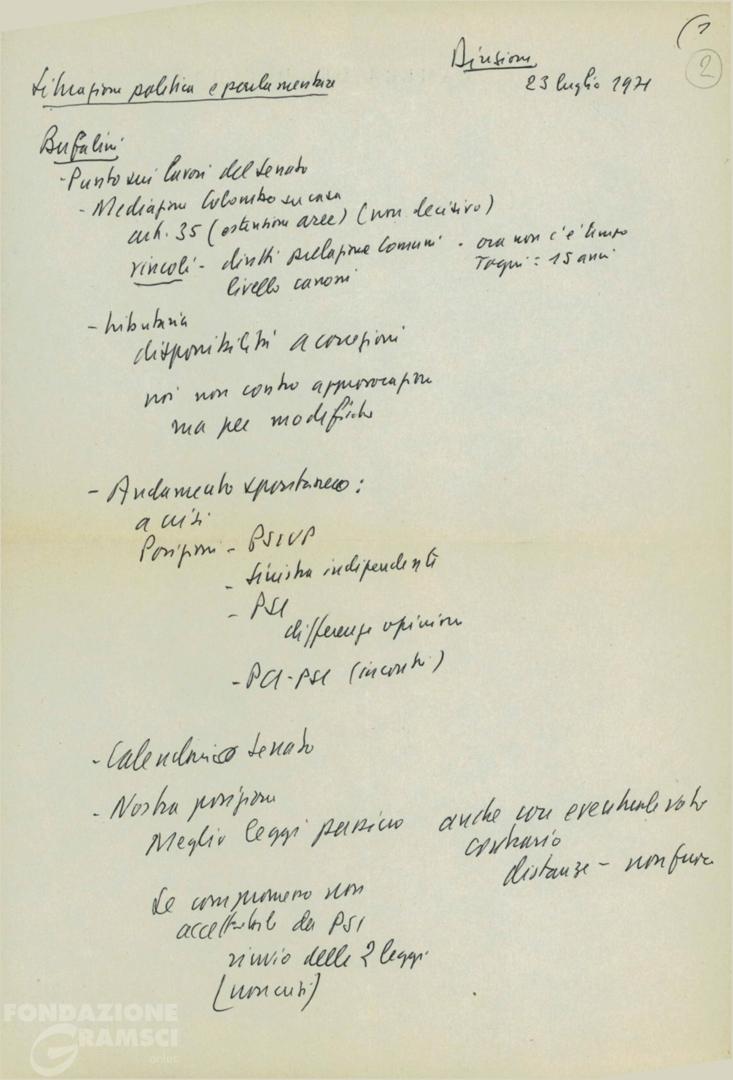 (1
2
Direzione
23 luglio 1971
Situazione politica e parlamentare
Bufalini
- Punto sui lavori del Senato
- Mediazione Colombo su casa
art. 35 (estensione aree) (non decisivo)
vincoli - diritti prelazione Comuni - ora non c'è tempo
Togni = 15 anni
livello canoni
- tributaria
disponibilità a correzioni
noi non contro approvazione
ma per modifiche
- Andamento spontaneo:
a crisi
Posizioni - PSIUP
- Sinistra indipendente
- PSI
differenze opinioni
- PCI-PSI (incontri)
- Calendario Senato
- Nostra posizione
Meglio leggi passino anche con eventuale voto
contrario
distanze - non fuori
Se compromesso non
accettabile da PSI
rinvio delle 2 leggi
(non crisi)
FONDAZIONE
GRAMSCI
onlus